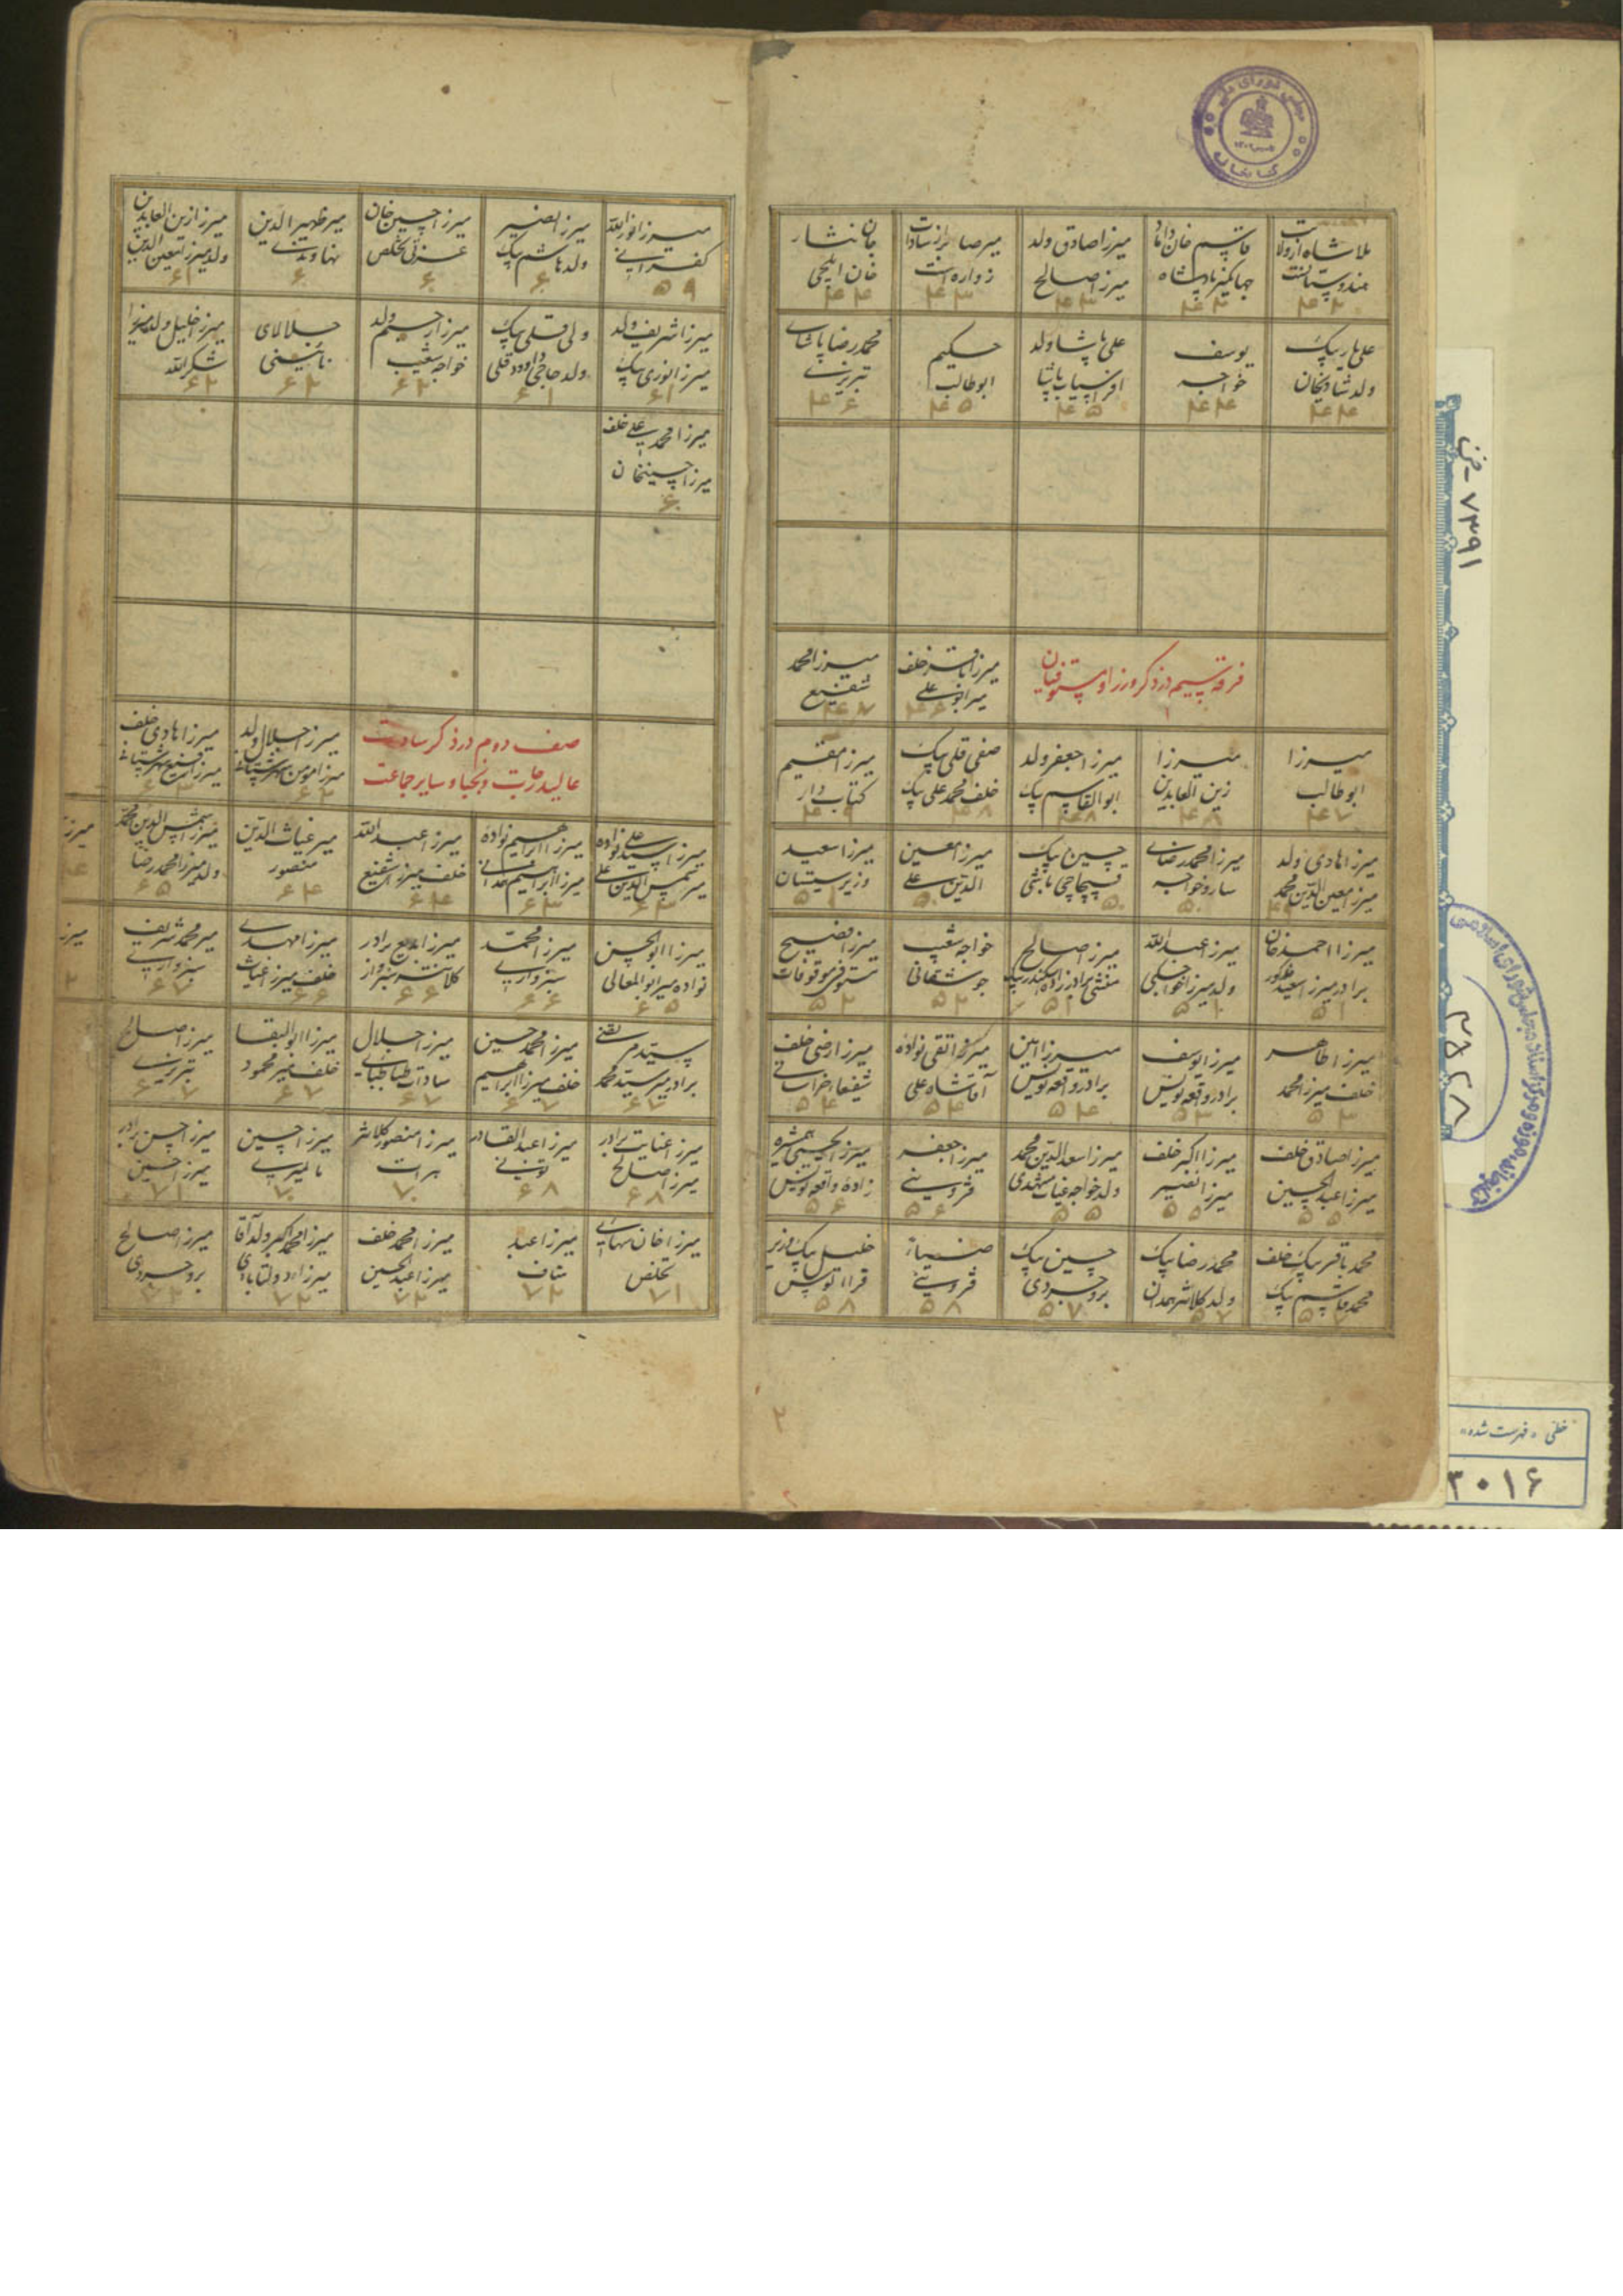 ملا شاه از ولایت
هندوستانست
۴۳
قاسم خان داماد
جهانگیر پادشاه
۴۳
میرزا صادق ولد
میرزا صالح
۴۳
میر صابر از سادات
زواره است
۴۳
جان نثار
خان ایلچی
۴۴
علی یار بیک
ولد شادیخان
۴۴
یوسف
خواجه
۴۴
علی پاشا ولد
افراسیاب پاشا
۴۵
حکیم
ابوطالب
۴۵
محمد رضا پاشای
تبریزی
۴۶
فرقه سیم در ذکر وزرا و مستوفیان
میرزا باقر خلف
میر ابو علی
۴۶
میرزا محمد
شفیع
۴۷
میرزا
ابوطالب
۴۷
میرزا
زین العابدین
۴۸
میرزا جعفر ولد
ابوالقاسم بیک
۴۸
صفی قلی بیک
خلف محمد علی بیک
۴۸
میرزا مقیم
کتاب دار
۴۹
میرزا هادی ولد
میرزا معین الدین محمد
۴۹
میرزا محمد رضای
سارو خواجه
۵۰
حسین بیک
قیچاچی باشی
۵۰
میرزا معین
الدین علی
۵۰
میرزا سعید
وزیر سیستان
۵۱
میرزا احمد خان
برادر میرزا سعید مذکور
۵۱
میرزا عبدالله
ولد میرزا خواجکی
۵۱
میرزا صالح
منشی برادرزاده اسکندر بیک
۵۱
خواجه شعیب
جوشقانی
۵۲
میرزا فصیح
مستوفی موقوفات
۵۲
میرزا طاهر
خلف میرزا محمد
۵۳
میرزا یوسف
برادر وقعه نویس
۵۳
میرزا امین
برادر وقعه نویس
۵۴
میرزا تقی نواده
آقا شاه علی
۵۴
میرزا رضی خلف
شفیعا خراسانی
۵۴
میرزا صادق خلف
میرزا عبدالحسین
۵۵
میرزا اکبر خلف
میرزا نصیر
۵۵
میرزا سعدالدین محمد
ولد خواجه غیاث مشهدی
۵۵
میرزا جعفر
قزوینی
۵۶
میرزا یحیی همشیره
زاده واقعه نویس
۵۶
محمد باقر بیک خلف
محمد قاسم بیک
محمد رضا بیک
ولد کلانتر همدان
۵۷
حسین بیک
بروجردی
۵۷
قزوینی
۵۸
خلیل بیک وزیر
قرا الوس
۵۸
میرزا نورالله
کفرانی
۵۹
میرزا نصیر
ولد هاشم بیک
۶۰
میرزا حسین خان
عزتی تخلص
۶۰
میر ظهیر الدین
نهاوندی
۶۰
میرزا زین العابدین
ولد میرزا معین الدین
۶۱
میرزا شریف ولد
میرزا نوری بیک
۶۱
ولی قلی بیک
ولد حاجی داود قلی
۶۱
میرزا رحیم ولد
خواجه شعیب
۶۲
جلالای
نائینی
۶۲
میرزا خلیل ولد میرزا
شکرالله
۶۲
میرزا محمد علی خلف
میرزا حسینخان
۶۰
صف دوم در ذکر سادات
عالیدرجات و نجبا و سایر جماعت
میرزا جلال ولد
میرزا مومن شهرستانی
۶۳
میرزا هادی خلف
میرزا رفیع شهرستانی
۶۳
میرزا سید علی نواده
میر شمس الدین علی
۶۳
میرزا ابراهیم نواده
میرزا ابراهیم همدانی
۶۳
میرزا عبدالله
خلف میرزا شفیع
۶۴
میر غیاث الدین
منصور
۶۴
میرزا شمس الدین محمد
ولد میرزا محمد رضا
۶۵
میرزا ابوالحسن
نواده میر ابوالمعالی
۶۵
میرزا محمد
سبزواری
۶۶
میرزا بدیع برادر
کلانتر سبزوار
۶۶
میرزا مهدی
خلف میرزا غیاث
۶۶
میر محمد شریف
سبزواری
۶۷
سید مرتضی
برادر میر سید محمد
۶۷
میرزا محمد حسین
خلف میرزا ابراهیم
۶۷
میرزا جلال
سادات طباطبای
۶۷
میرزا ابوالبقا
خلف میر محمود
۶۷
میرزا صالح
تبریزی
۶۷
میرزا عنایت برادر
میرزا صالح
۶۸
میرزا عبدالقادر
تونی
۶۸
میرزا منصور کلانتر
هرات
۷۰
میرزا حسین
مالمیری
۷۰
میرزا حسن برادر
میرزا حسین
۷۱
تخلص
۷۱
میرزا عبد
۷۲
میرزا محمد خلف
میرزا عبدالحسین
۷۲
میرزا محمد اکبر ولد آقا
میرزا دولتابادی
۷۲
میرزا صالح
بروجردی
مجلس شورای ملی
کتابخانه
۷۳۹۱ - خ
۲۸۲۸
خطی «فهرست شده»
۳۰۱۶
۲